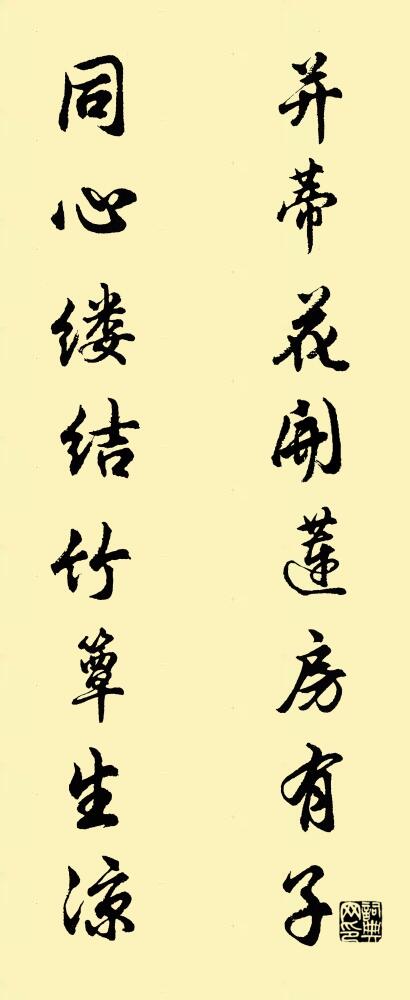 并蒂花開蓮房有子
同心缕结竹簟生凉
詞典网印